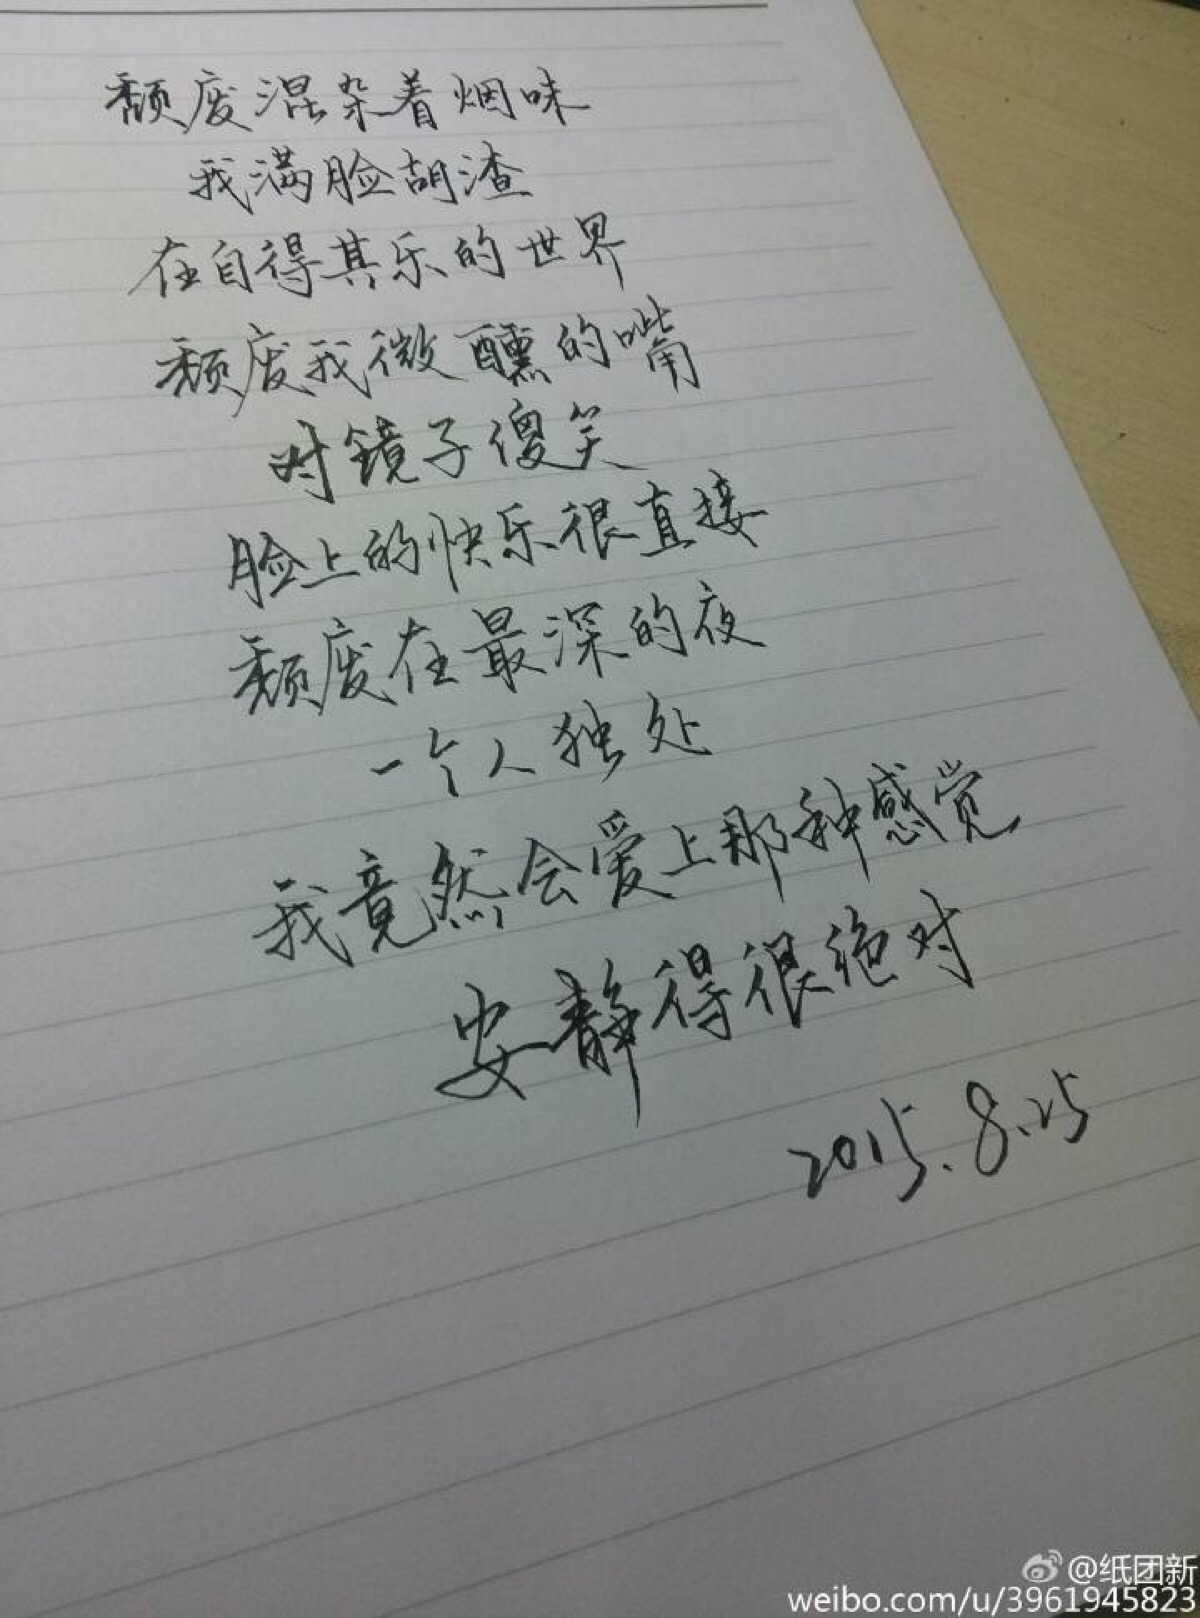 颓废混杂着烟味
我满脸胡渣
在自得其乐的世界
颓废我微醺的嘴
对镜子傻笑
脸上的快乐很直接
颓废在最深的夜
一个人独处
我竟然会爱上那种感觉
安静得很绝对
2015.8.25
@纸团新
weibo.com/u/3961945823